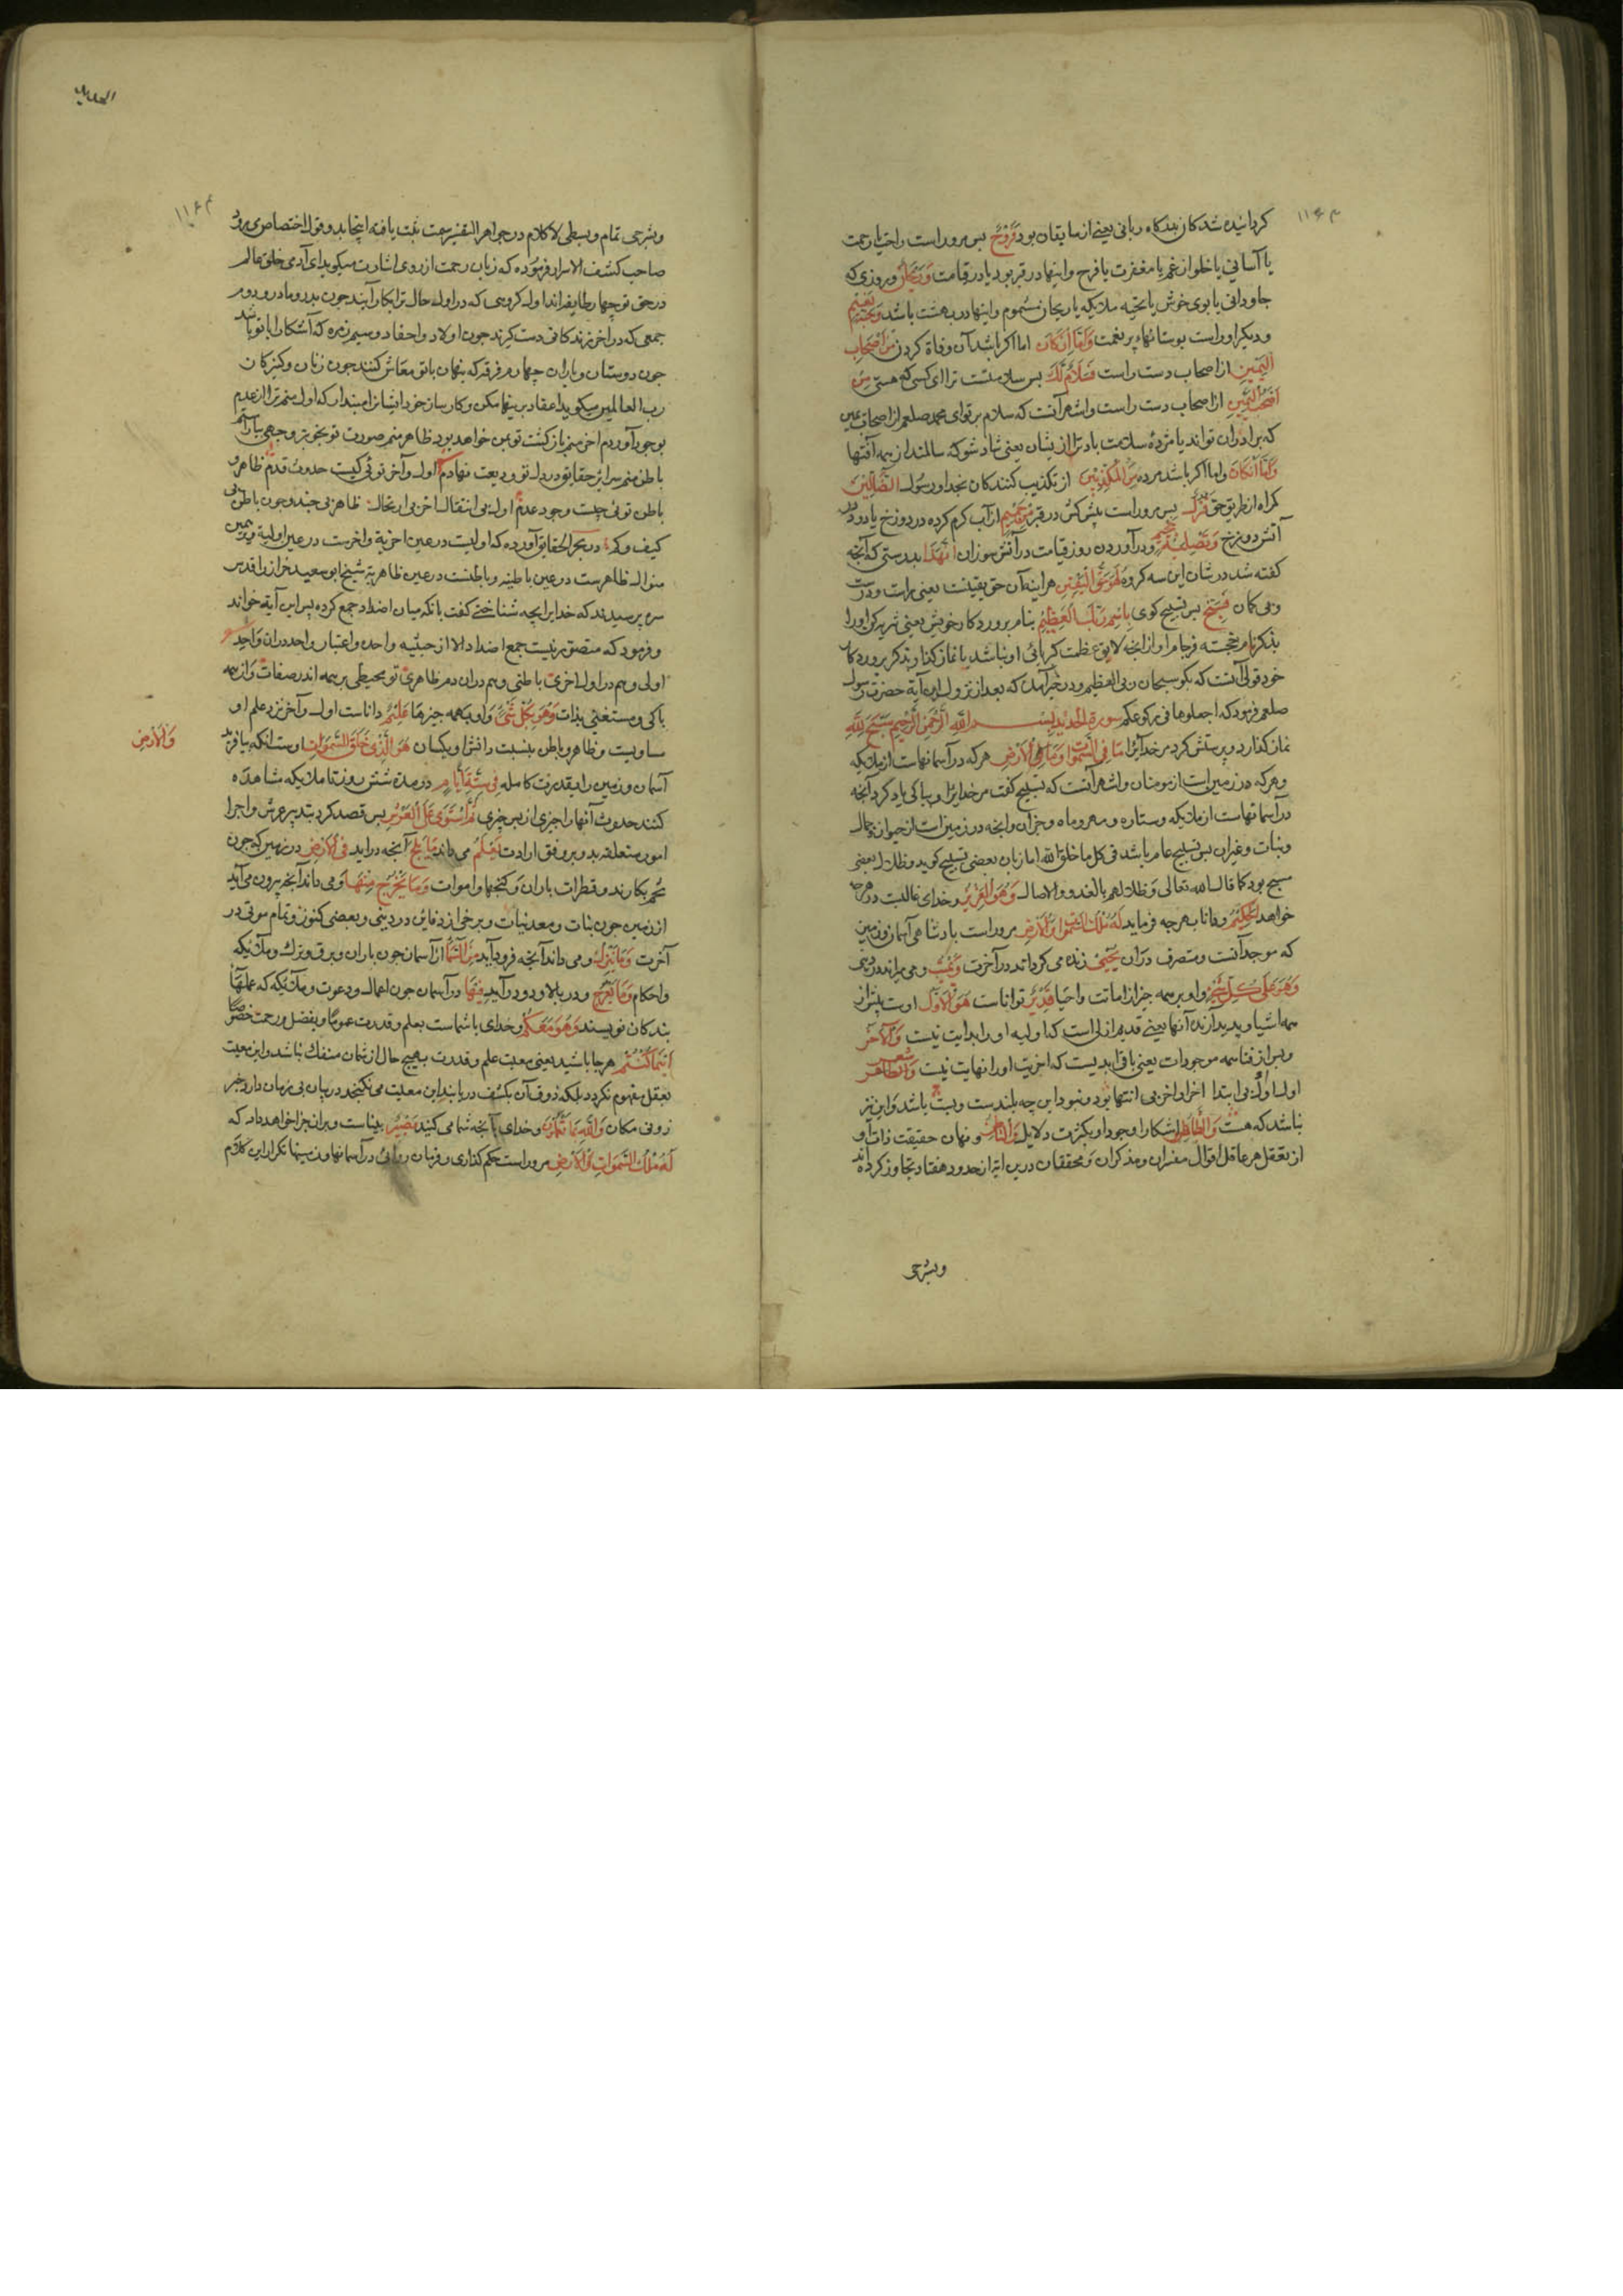 کردانیده شدکان بندکاه ربانی یعنی از سابقان بود فَرَوْحٌ پس مرور است راحت یا رحمت
یا آسانی یا خلو از غم یا مغفرت یا فرح و اینها در قبر بود یا در قیامت وَرَیْحَانٌ و روزی که
جاودانی یا بوی خوش یا تحیه ملایکه یا ریحان مشموم و اینها در بهشت باشد وَجَنَّتُ نَعِیْمٍ
و دیکر اوراست بوستانهاء پر نعمت وَاَمَّا اِنْ کَانَ اما اکر باشد آن وفاة کردن مِنْ اَصْحَابِ
الْیَمِیْنِ از اصحاب دست راست فَسَلَامٌ لَكَ پس سلامتست ترا ای کسی که هستی مِنْ
اَصْحَابِ الْیَمِیْنِ از اصحاب دست راست و اشهر آنست که سلام بر تو ای محمد صلعم از اصحاب یمین
که برادران تو اند یا مژدهٔ سلامت باد ترا از یشان یعنی شاد شو که سالمند از همه آفتها
وَاَمَّا اِنْ کَانَ و اما اکر باشد مرده مِنَ الْمُکَذِّبِیْنَ از تکذیب کنندکان بخدا و رسول الضَّالِّیْنَ
کمراه از طریق حق فَنُزُلٌ پس مرور است پیش کش در قبر مِنْ حَمِیْمٍ از آب کرم کرده در دوزخ یا دود
آتش دوزخ وَتَصْلِیَةُ جَحِیْمٍ و درآوردن روز قیامت در آتش سوزان اِنَّ هٰذَا بدرستی که آنچه
کفته شد در شان این سه کروه لَهُوَ حَقُّ الْیَقِیْنِ هراینه آن حق یقینست یعنی راست و درست
و بی کمان فَسَبِّحْ پس تسبیح کوی بِاسْمِ رَبِّكَ الْعَظِیْمِ بنام پروردکار خویش یعنی تنزیه کن او را
بذکر نام خجسته فرجام او از آنچه لایق عظمت کبریائی او نباشد یا نماز کذار بذکر پروردکار
خود قولی آنست که بکو سبحان ربی العظیم و در خبر آمده که بعد از نزول این آیة حضرت رسول
صلعم فرمود که اجعلوها فی رکوعکم سورة الحدید بِسْمِ اللّٰهِ الرَّحْمٰنِ الرَّحِیْمِ سَبَّحَ لِلّٰهِ
نماز کذارد و پرستش کرد مر خدایرا مَا فِی السَّمٰوَاتِ وَمَا فِی الْاَرْضِ هر که در آسمانهاست از ملایکه
و هر که در زمین است از مومنان و اشهر آنست که تسبیح کفت مر خدایرا و بپاکی یاد کرد آنچه
در آسمانهاست از ملایکه و ستاره و مهر و ماه و جز آن و آنچه در زمین است از حیوان و جمال
و نبات و غیران پس تسبیح عام باشد فی کل ما خلق الله اما زبان بعضی تسبیح کوید و ظلال بعضی
مسبح بود کما قال الله تعالی وظلالهم بالغدو والاصال وَهُوَ الْعَزِیْزُ و خدای غالبست در هرچه
خواهد الْحَکِیْمُ و دانا بهرچه فرماید لَهُ مُلْكُ السَّمٰوَاتِ وَالْاَرْضِ مرور است بادشاهی آسمان و زمین
که موجد آنست و متصرف در آن یُحْیِیْ زنده می کرداند در آخرت وَیُمِیْتُ و می میراند در دنیا
وَهُوَ عَلٰی کُلِّ شَیْءٍ و او بر همه چیز از اماتت و احیا قَدِیْرٌ تواناست هُوَ الْاَوَّلُ اوست پیش از
همه اشیا و پدید آرنده آنها یعنی قدیم ازلی است که اولیه او را بدایت نیست وَالْاٰخِرُ
و پس از فناء همه موجودات یعنی باقی ابدیست که آخریت او را نهایت نیست وَالظَّاهِرُ شعر
اول اول بی ابتدا آخر او آخر بی انتها بود و نبود این چه بلندست و پست باشد و این نیز
نباشد که هست وَالظَّاهِرُ اشکارا وجود او بکثرت دلایل وَالْبَاطِنُ و نهان حقیقت ذات او
از تعقل هر عاقل اقوال مفسران و مذکران و محققان درین ایة از حدود هفتاد تجاوز کرده اند
وبشرحی
الحدید
وبشرحی تمام و بسطی لا کلام در جواهر التفسیر سمت ثبت یافته اینجا بدو قول اختصاص می رود
صاحب کشف الاسرار فرموده که زبان رحمت از روی اشارت میکوید ای آدمی خلق عالم
در حق تو چهار طایفه اند اول کروهی که در اول حال ترا بکار آیند چون پدر و مادر و دوم
جمعی که در آخر زندکانی دست کیرند چون اولاد و احفاد و سیم زمره که آشکارا با تو باشند
چون دوستان و یاران چهارم فرقه که پنهان با تو معاش کنند چون زنان و کنیزکان
رب العالمین میکوید اعتماد برینها مکن و کارساز خود ایشانرا مپندار که اول منم ترا از عدم
بوجود آوردم آخر منم بازکشت تو بمن خواهد بود ظاهر منم صورت تو بخوبتر وجهی بیاراستم
باطن منم سرایر حقایق در دل تو ودیعت نهادم اول و آخر توئی کیست حدوث قدم ظاهر و
باطن توئی چیست وجود عدم اول بی انتقال آخر بی ارتحال ظاهر بی چند و چون باطن بی
کیف و کم در بحر الحقایق آورده که اولیست در عین آخریة و آخرست در عین اولیة و برین
منوال ظاهرست در عین باطنیه و باطنست در عین ظاهریة شیخ ابو سعید خراز را قدس
سره پرسیدند که خدایرا بچه شناختی کفت بانکه میان اضداد جمع کرده پس این آیة خواند
و فرمود که متصور نیست جمع اضداد الا از حیثیه واحده و اعتبار واحد دران واحد
اولی و هم در اول آخری باطنی و هم دران دم ظاهری تو محیطی بر همه اندر صفات و از همه
پاکی و مستغنی بذات وَهُوَ بِکُلِّ شَیْءٍ و او بهمه چیزها عَلِیْمٌ داناست اول و آخر نزد علم او
مساویست و ظاهر و باطن بنسبت دانش او یکسان هُوَ الَّذِیْ خَلَقَ السَّمٰوَاتِ اوست انکه بیافرید
وَالْاَرْضَ
آسمان و زمین را بقدرت کامله فِیْ سِتَّةِ اَیَّامٍ در مدة شش روز تا ملایکه شاهده
کنند حدوث آنها را چیزی از پس چیزی ثُمَّ اسْتَوٰی عَلَی الْعَرْشِ پس قصد کرد بتدبیر عرش و اجرا
امور متعلقه بدو بر وفق ارادت یَعْلَمُ می داند مَا یَلِجُ آنچه دراید فِی الْاَرْضِ در زمین که چون
تخم بکارند و قطرات باران و کنجها و اموات وَمَا یَخْرُجُ مِنْهَا و می داند آنچه بیرون می آید
از زمین چون نبات و معدنیات و برخی از دفاین در دنیی و بعضی کنوز و تمام موتی در
آخرت وَمَا یَنْزِلُ و می داند آنچه فرود آید مِنَ السَّمَاءِ از آسمان چون باران و برق و برف و ملایکه
و احکام وَمَا یَعْرُجُ و در بالا رود و در آید فِیْهَا در آسمان چون اعمال و دعوت و ملایکه که عملهاء
بندکان نویسند وَهُوَ مَعَکُمْ و خدای با شماست بعلم و قدرت عموما و بفضل و رحمت خصوصا
اَیْنَمَا کُنْتُمْ هر جا باشید یعنی معیت علم و قدرت بهیچ حال از شمان منفك نباشد و این معیت
بعقل مفهوم نکردد بلکه ذوق آن بکشف دریابند این معیت می نکنجد در بیان بی زمان دارد خبر
زو نی مکان وَاللّٰهُ بِمَا تَعْمَلُوْنَ و خدای بآنچه شما می کنید بَصِیْرٌ بیناست و بران جزا خواهد داد که
لَهُ مُلْكُ السَّمٰوَاتِ وَالْاَرْضِ مرور است حکم کذاری و فرمان روائی در آسمانها و زمینها تکرار این کلام